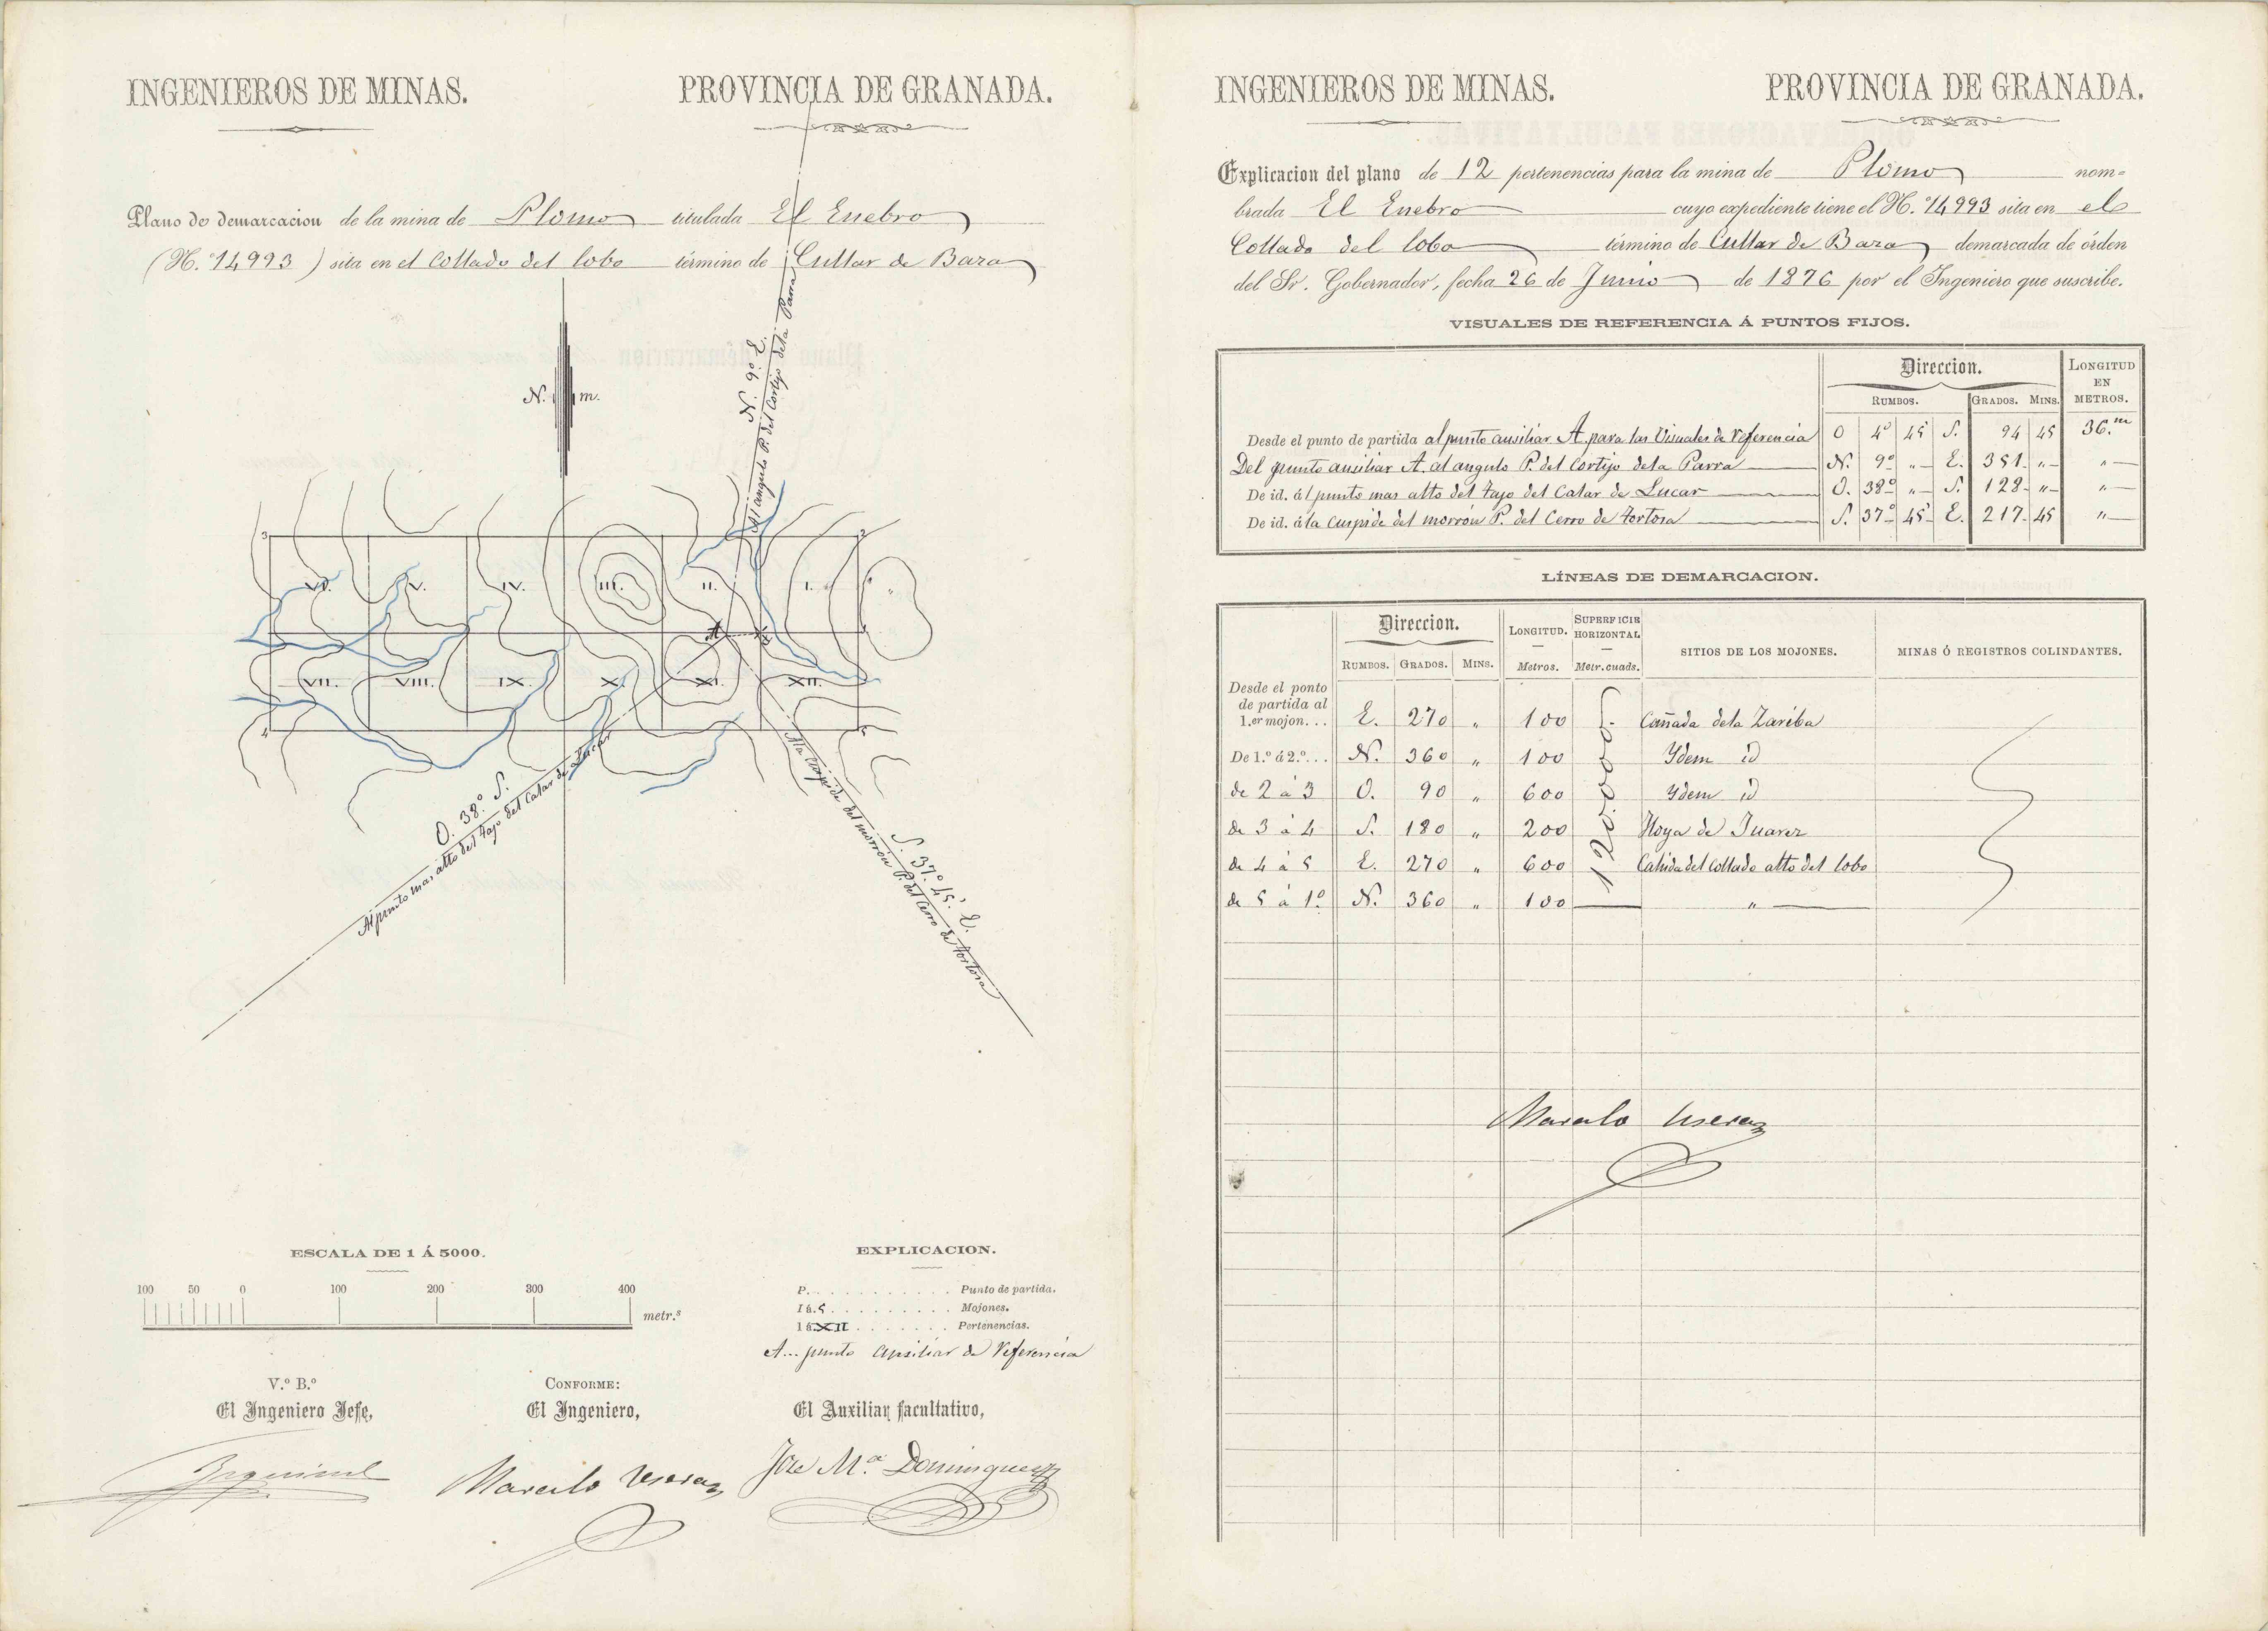 INGENIEROS DE MINAS. PROVINCIA DE GRANADA.
Plano de demarcacion de la mina de Plomo titulada El Enebro
(N.º 14993) sita en el Collado del lobo término de Cullar de Baza
N. m.
N. 9º E.
Al angulo P. del Cortijo de la Parra
3 2
VI. V. IV. III. II. I.
A P. 1
VII. VIII. IX. X. XI. XII.
4 5
O. 38.º S.
Al punto mas alto del tajo del Calar de Lucar
S. 37.º 45.' E.
A la cuspide del morrón P. del Cerro de Tortosa
ESCALA DE 1 Á 5000.
100 50 0 100 200 300 400
metr.s
EXPLICACION.
P. . . . . . . . . . . . Punto de partida.
1 á 5 . . . . . . . . . . Mojones.
1 á XII . . . . . . . . Pertenencias.
A... punto ausiliar de referencia
V.º B.º
El Ingeniero Jefe,
CONFORME:
El Ingeniero,
Marcelo Usera
El Auxiliar facultativo,
Jose M.ª Dominguez
INGENIEROS DE MINAS. PROVINCIA DE GRANADA.
Explicacion del plano de 12 pertenencias para la mina de Plomo nom-
brada El Enebro cuyo expediente tiene el N.º 14993 sita en el
Collado del lobo término de Cullar de Baza demarcada de órden
del Sr. Gobernador, fecha 26 de Junio de 1876 por el Ingeniero que suscribe.
VISUALES DE REFERENCIA Á PUNTOS FIJOS.
Direccion. LONGITUD EN METROS.
RUMBOS. GRADOS. MINS.
Desde el punto de partida al punto ausiliar A. para las Visuales de referencia O 4º 45' S. 94 45 36.m
Del punto ausiliar A. al angulo P. del Cortijo de la Parra N. 9º " E. 351. " "
De id. al punto mas alto del tajo del Calar de Lucar O. 38º " S. 128. " "
De id. á la cuspide del morrón P. del Cerro de Tortosa S. 37º 45' E. 217. 45 "
LÍNEAS DE DEMARCACION.
Direccion. LONGITUD. SUPERFICIE HORIZONTAL SITIOS DE LOS MOJONES. MINAS Ó REGISTROS COLINDANTES.
RUMBOS. GRADOS. MINS. Metros. Metr. cuads.
Desde el ponto
de partida al
1.er mojon... E. 270 " 100 Cañada de la Zariba
De 1.º á 2.º... N. 360 " 100 Ydem id
de 2 á 3 O. 90 " 600 Ydem id
de 3 á 4 S. 180 " 200 Hoya de Juarez
de 4 á 5 E. 270 " 600 Cahida del collado alto del lobo
de 5 á 1º N. 360 " 100 "
120.000
Marcelo Usera